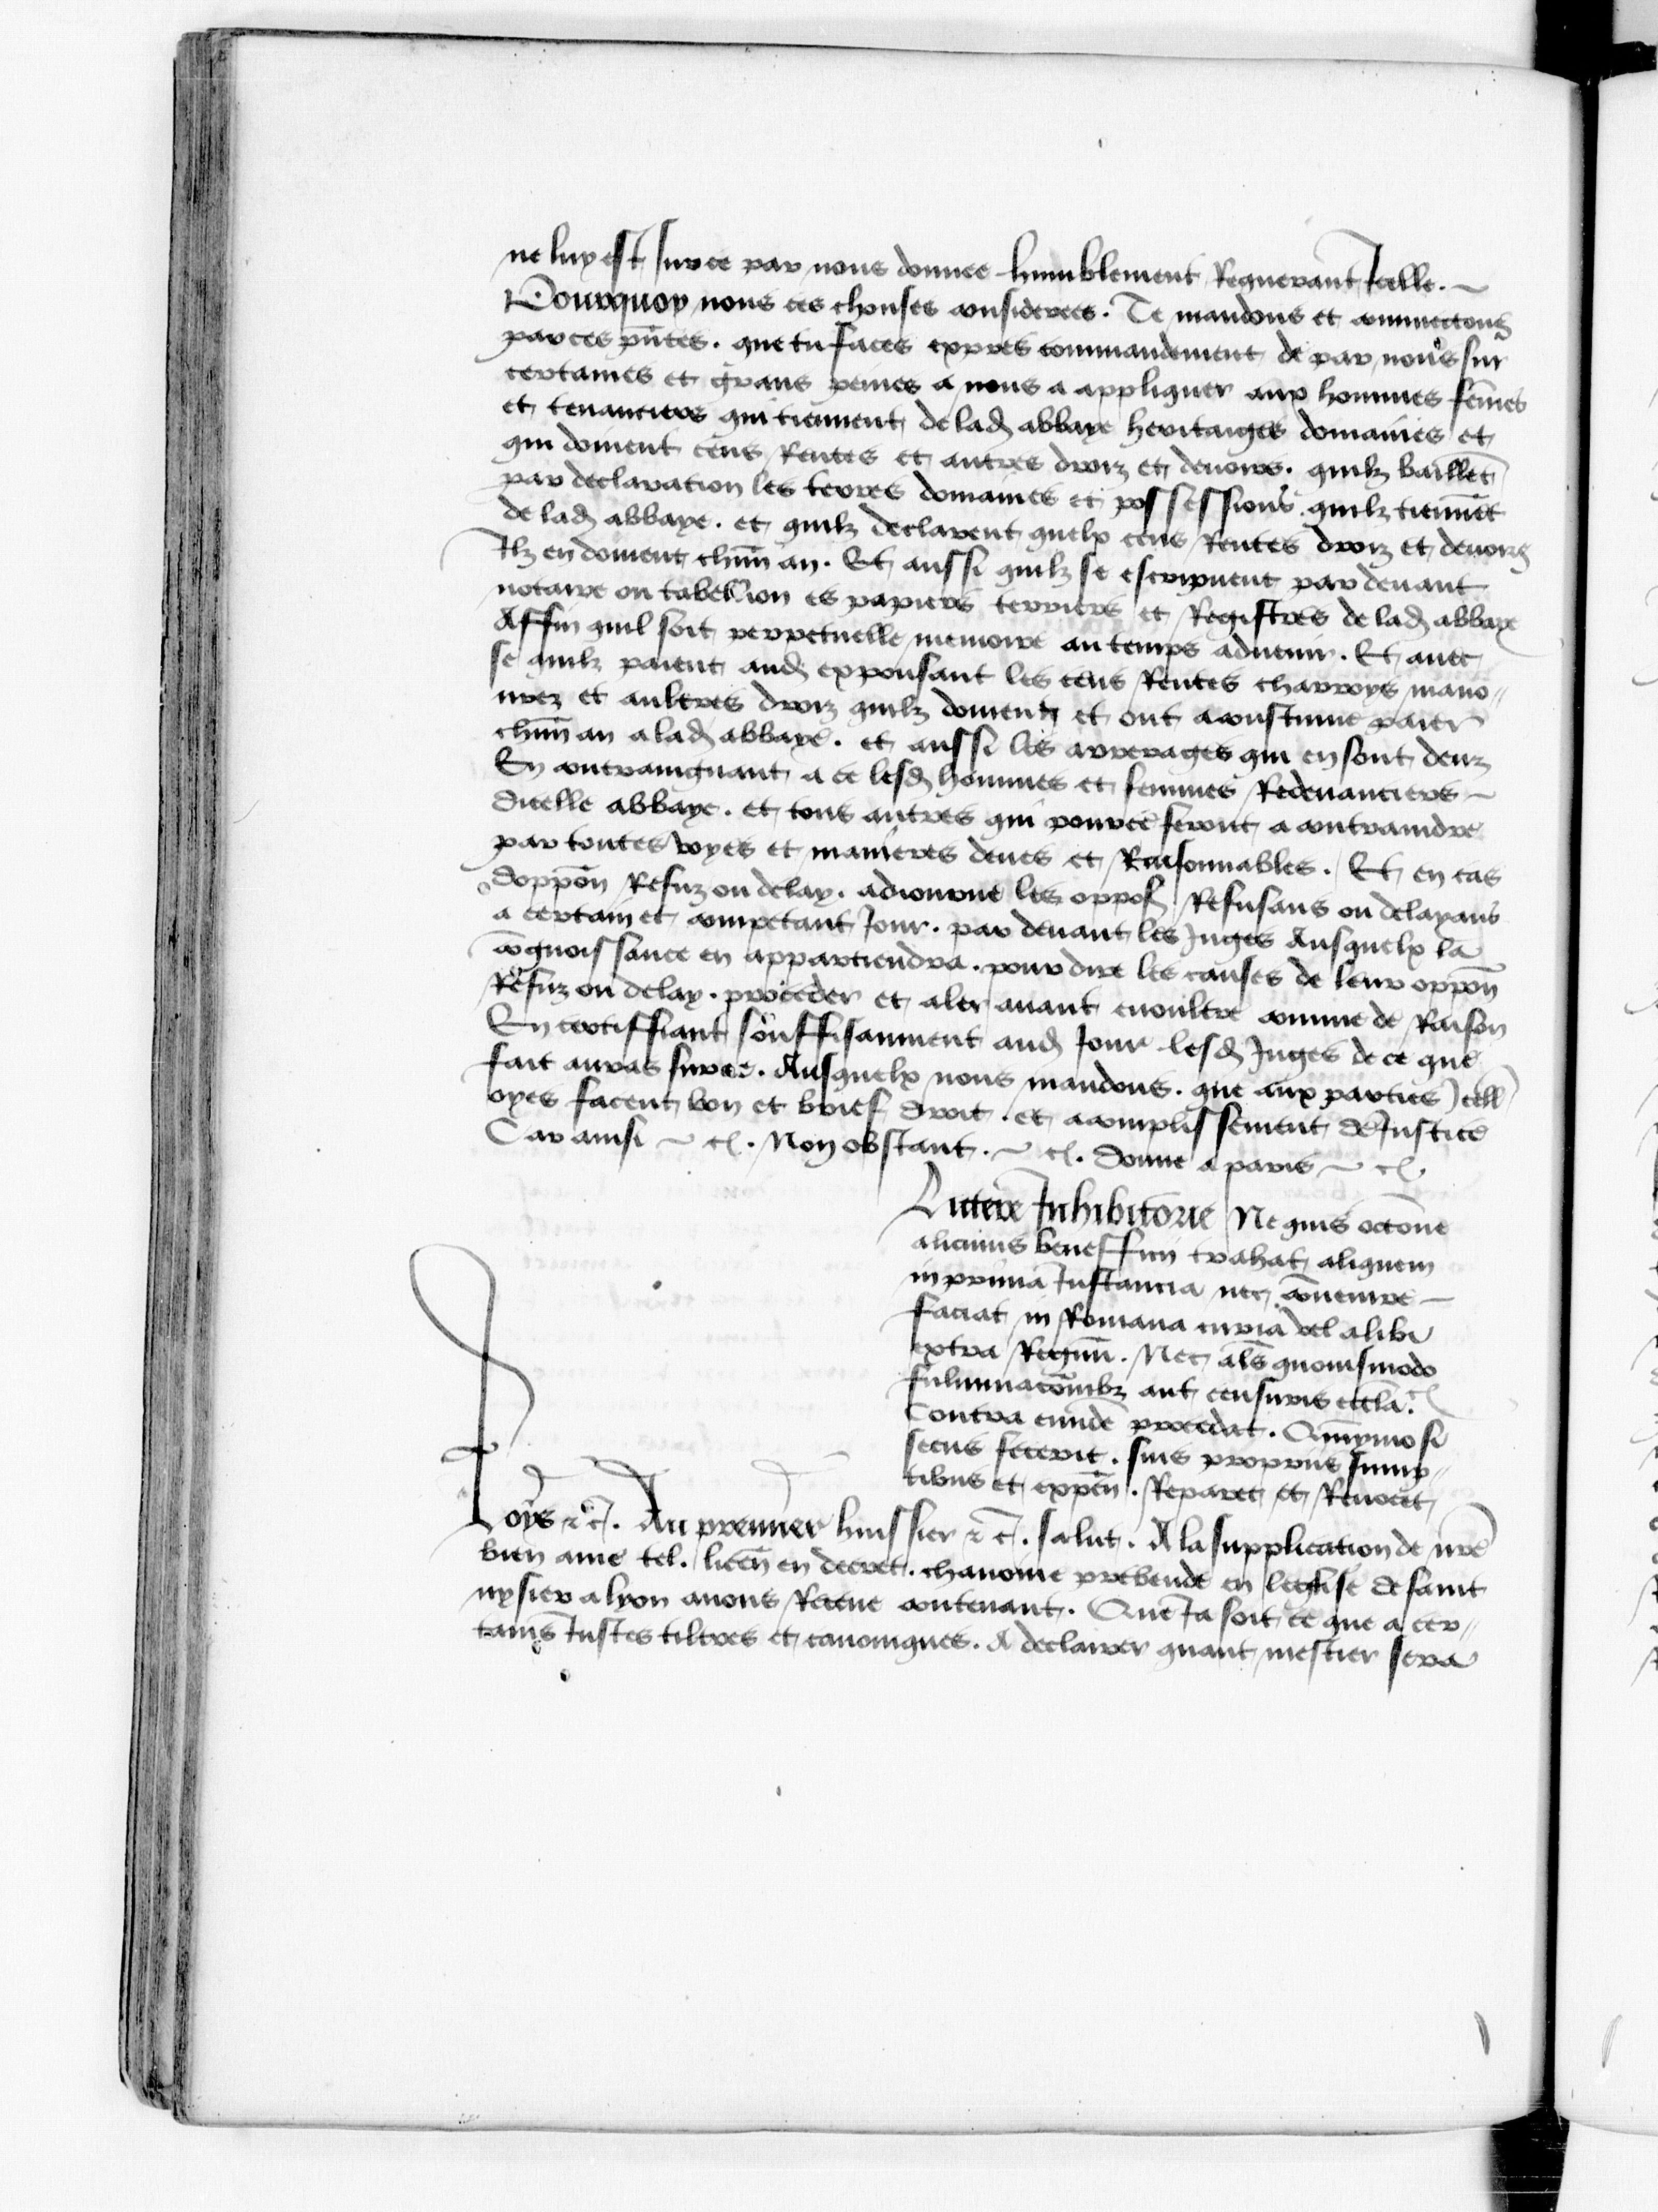 ne luy est sur ce par nous donnee humblement Requerant Icelle. ~
Pourquoy nous ces chouses considerees. Te mandons et commectons
par ces pñtes. que tu faces expres commandement de par nous sur
certaines et grans peines a nous a appliquer aux hommes fem̃es
et tenanciers qui tiennent de lad abbaye heritaiges domaines et
qui doiuent cens Rentes et autres droiz et deuoirs. quilz baillet̃
par declaration les terres domaines et possessions quilz tiennẽt
de lad abbaye. et quilz declarent quelx cens Rentes droiz et deuoirs
Ilz en doiuent chũn an. Et aussi quilz se escripuent par deuant
notaire ou tabellion es papiers terriers et Registres de lad abbaye
Affin quil soit perpetuelle memoire au temps aduenir. Et auec
se quilz paient aud expousant les cens Rentes charroys mano"
urez et aultres droiz quilz doiuent et ont acoustume paier
chũn an a lad abbaye. et aussi les arrerages qui en sont deuz
En contraingnant a ce lesd hommes et femmes Redeuanciers ~
dicelle abbaye. et tous autres qui pour ce seront a contraindre
par toutes voyes et manieres deues et Raisonnables. Et en cas
doppõn Refuz ou delay. adiourne les oppos Refusans ou delayans
a certain et competant Jour. par deuant les Juges Ausquelx la
cõgnoissance en appartiendra. pour dire les causes de leur oppõn
Refuz ou delay. proceder et aler auant enoultre comme de Raison
En certiffiant souffisamment aud Jour lesd Juges de ce que
fait auras sur ce. Ausquelx nous mandons. que aux parties Icell
oyes facent bon et brief droit. et acomplissement de Justice
Car ainsi ~ &c. Non obstant. ~ &c. donne a paris ~ &c
Littere Inhibitorie Ne quis occõne
alicuius beneffiu trahat aliquem
in prima Instancia nec cõuenire ~
faciat in Romana curia vel alibi
extra Regnũ. Nec al̃s quouismodo
fulminacõnibz aut censuris eccl̃a.
Contra eumdẽ procedat. Quinymo si
secus fecerit. suis propriis sump"
tibus et expen̄. Reparet et Reuocet
Loys &c. Au premier huissier &c. salut. A la supplication de nr̃e
bien ame tel. licen̄ en decret. chanoine prebende en leglise de saint
nysier a lyon auons Receue contenant. Que Ia soit ce que a cer"
tains Iustes tiltres et canoniques. A declairer quant mestier sera